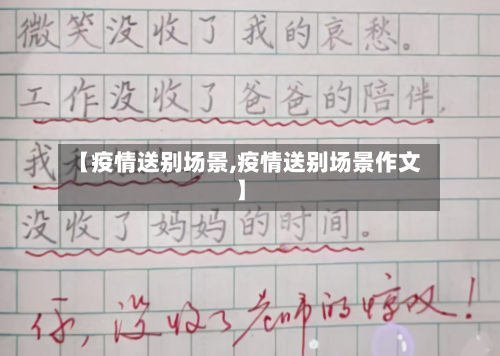 微笑没收了我的哀愁。
工作没收了爸爸的陪伴,
我
【疫情送别场景,疫情送别场景作文
】
没收了妈妈的时间。
你,没收了老师的惊叹!